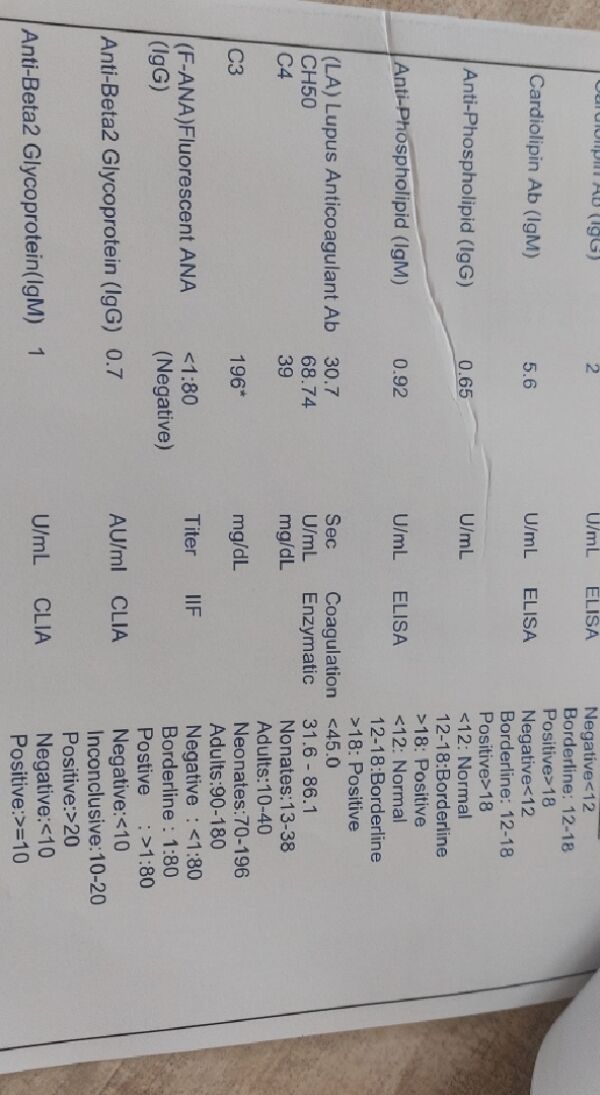 Cardiolipin Ab (IgG) 2 U/mL ELISA Negative<12
Borderline: 12-18
Positive>18
Cardiolipin Ab (IgM) 5.6 U/mL ELISA Negative<12
Borderline: 12-18
Positive>18
Anti-Phospholipid (IgG) 0.65 U/mL <12: Normal
12-18:Borderline
>18: Positive
Anti-Phospholipid (IgM) 0.92 U/mL ELISA <12: Normal
12-18:Borderline
>18: Positive
(LA) Lupus Anticoagulant Ab 30.7 Sec Coagulation <45.0
CH50 68.74 U/mL Enzymatic 31.6 - 86.1
C4 39 mg/dL Nonates:13-38
Adults:10-40
C3 196* mg/dL Neonates:70-196
Adults:90-180
(F-ANA)Fluorescent ANA <1:80 Titer IIF Negative : <1:80
(IgG) (Negative) Borderline : 1:80
Postive : >1:80
Anti-Beta2 Glycoprotein (IgG) 0.7 AU/ml CLIA Negative:<10
Inconclusive:10-20
Positive:>20
Anti-Beta2 Glycoprotein(IgM) 1 U/mL CLIA Negative:<10
Positive:>=10